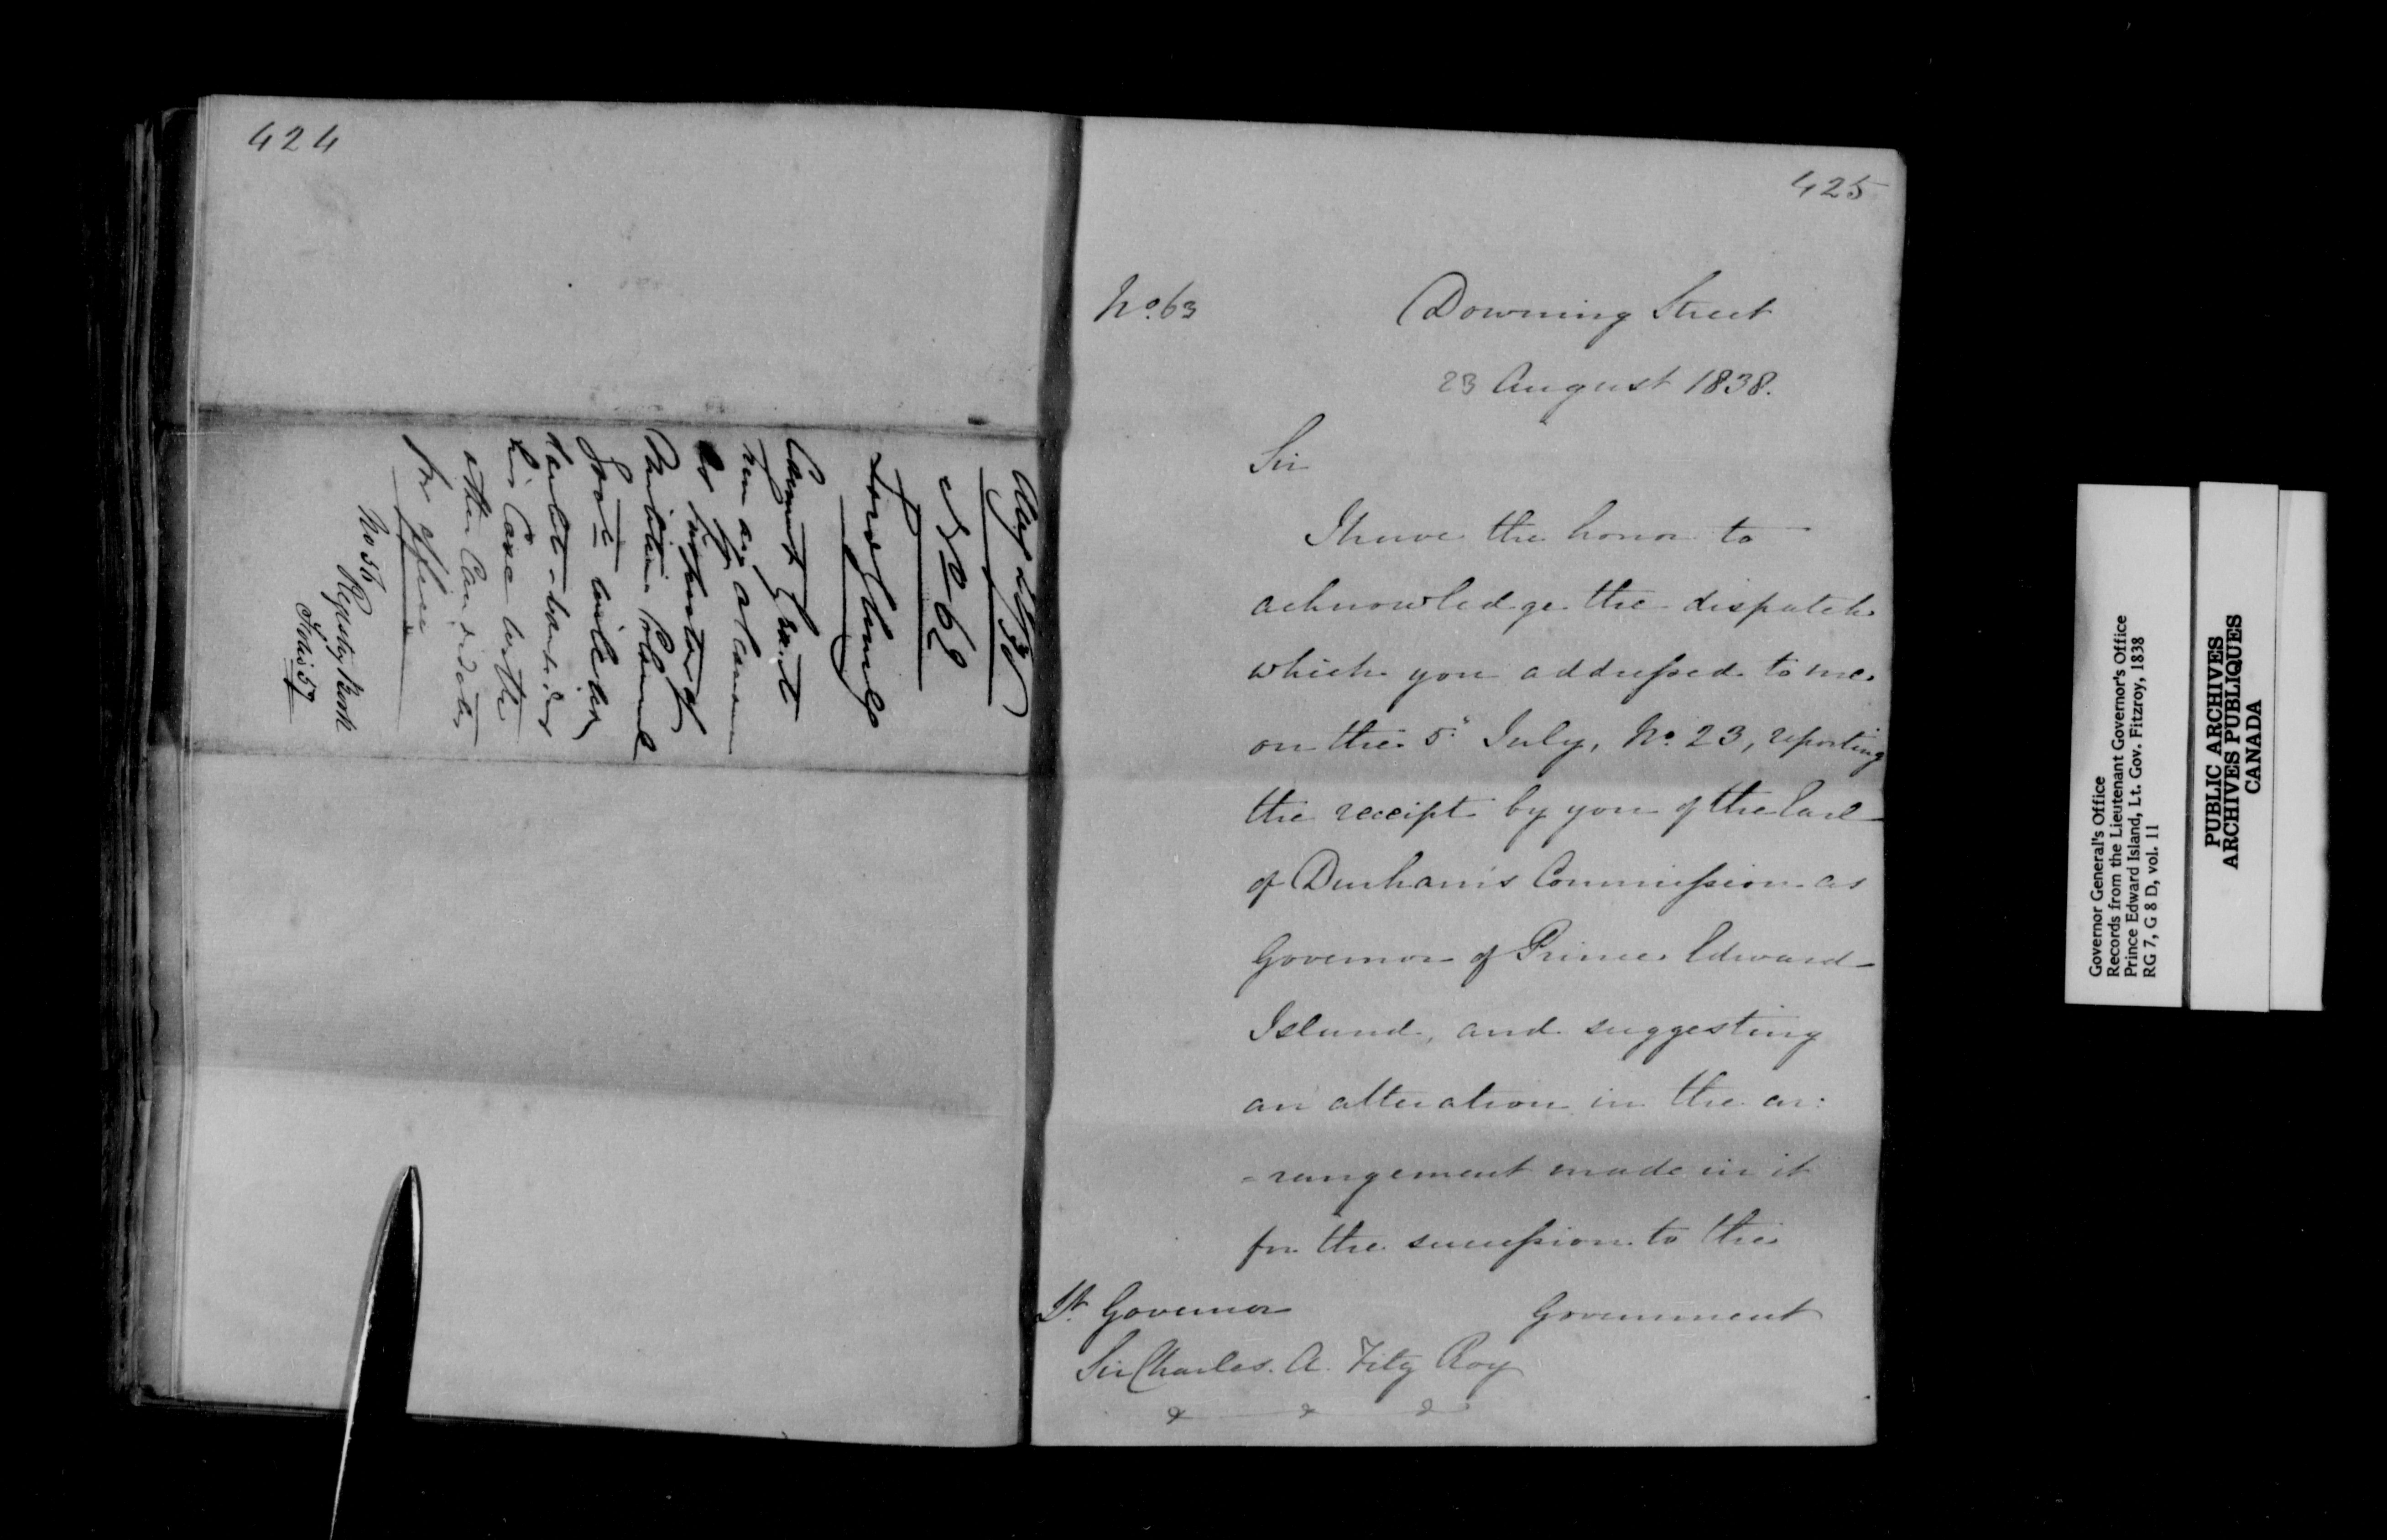 424
Augt 22/38
No 62
Lord Glenelg
Cannot
to
will
his Case with
other Candidates
for office
No 56
Registry Book
Folio 57
425
No. 63
Downing Street
23 August 1838.
Sir
I have the honor to
acknowledge the dispatch
which you addressed to me
on the 5th July, No. 23, reporting
the receipt by you of the Earl
of Durham's Commission as
Governor of Prince Edward
Island, and suggesting
an alteration in the ar:
=rangement made in it
for the succession to the
Government
Lt. Governor
Sir Charles. A. Fitz Roy
&c &c &c
Governor General's Office
Records from the Lieutenant Governor's Office
Prince Edward Island, Lt. Gov. Fitzroy, 1838
RG 7, G 8 D, vol. 11
PUBLIC ARCHIVES
ARCHIVES PUBLIQUES
CANADA